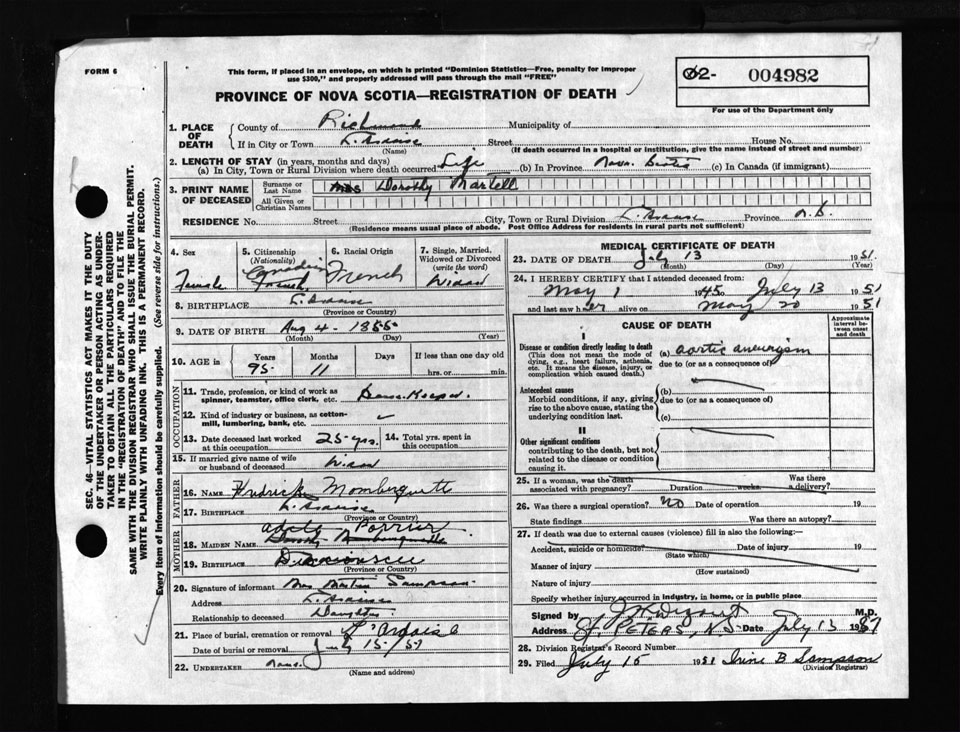 FORM 6
This form, if placed in an envelope, on which is printed "Dominion Statistics—Free, penalty for improper
use $300," and properly addressed will pass through the mail "FREE"
PROVINCE OF NOVA SCOTIA—REGISTRATION OF DEATH
02- 004982
For use of the Department only
1. PLACE OF DEATH
County of Richmond Municipality of
If in City or Town L'Ardoise Street House No.
(Name) (If death occurred in a hospital or institution, give the name instead of street and number)
2. LENGTH OF STAY (in years, months and days)
(a) In City, Town or Rural Division where death occurred Life (b) In Province Nova Scotia (c) In Canada (if immigrant)
3. PRINT NAME OF DECEASED
Surname or Last Name Mrs Dorothy Martell
All Given or Christian Names
RESIDENCE No. Street City, Town or Rural Division L'Ardoise Province N.S.
(Residence means usual place of abode. Post Office Address for residents in rural parts not sufficient)
4. Sex Female
5. Citizenship (Nationality) Canadian French
6. Racial Origin French
7. Single, Married, Widowed or Divorced (write the word) Widow
8. BIRTHPLACE L'Ardoise
(Province or Country)
9. DATE OF BIRTH Aug 4 - 1855
(Month) (Day) (Year)
10. AGE in Years Months Days If less than one day old
95 11 hrs. or min.
OCCUPATION
11. Trade, profession, or kind of work as
spinner, teamster, office clerk, etc.
12. Kind of industry or business, as cotton-
mill, lumbering, bank, etc.
13. Date deceased last worked at this occupation 25 yrs. 14. Total yrs. spent in this occupation
15. If married give name of wife
or husband of deceased Widow
FATHER
16. NAME
17. BIRTHPLACE L'Ardoise
(Province or Country)
MOTHER
18. MAIDEN NAME
19. BIRTHPLACE
(Province or Country)
20. Signature of informant Mrs Martin Sampson
Address L'Ardoise
Relationship to deceased Daughter
21. Place of burial, cremation or removal L'Ardoise
Date of burial or removal July 15/51
22. UNDERTAKER None.
(Name and address)
MEDICAL CERTIFICATE OF DEATH
23. DATE OF DEATH July 13 1951
(Month) (Day) (Year)
24. I HEREBY CERTIFY that I attended deceased from:
May 1 1945 July 13 1951
and last saw her alive on May 20 1951
CAUSE OF DEATH
Approximate interval between onset and death
I
Disease or condition directly leading to death (a) aortic aneurysm
(This does not mean the mode of dying, e.g., heart failure, asthenia, etc. It means the disease, injury, or complication which caused death.)
due to (or as a consequence of)
Antecedent causes (b)
Morbid conditions, if any, giving rise to the above cause, stating the underlying condition last.
due to (or as a consequence of)
(c)
II
Other significant conditions
contributing to the death, but not related to the disease or condition causing it.
25. If a woman, was the death associated with pregnancy? Duration weeks. Was there a delivery?
26. Was there a surgical operation? No Date of operation 19
State findings Was there an autopsy?
27. If death was due to external causes (violence) fill in also the following:—
Accident, suicide or homicide? Date of injury 19
(State which)
Manner of injury
(How sustained)
Nature of injury
Specify whether injury occurred in industry, in home, or in public place
Signed by M.D.
Address St. PETERS, N.S. Date July 13 19
28. Division Registrar's Record Number
29. Filed July 15 1951 Irine B Sampson
(Division Registrar)
SEC. 46—VITAL STATISTICS ACT MAKES IT THE DUTY
OF THE UNDERTAKER OR PERSON ACTING AS UNDER-
TAKER TO OBTAIN ALL THE PARTICULARS REQUIRED
IN THE "REGISTRATION OF DEATH" AND TO FILE THE
SAME WITH THE DIVISION REGISTRAR WHO SHALL ISSUE THE BURIAL PERMIT.
WRITE PLAINLY WITH UNFADING INK. THIS IS A PERMANENT RECORD.
Every item of information should be carefully supplied. (See reverse side for instructions.)